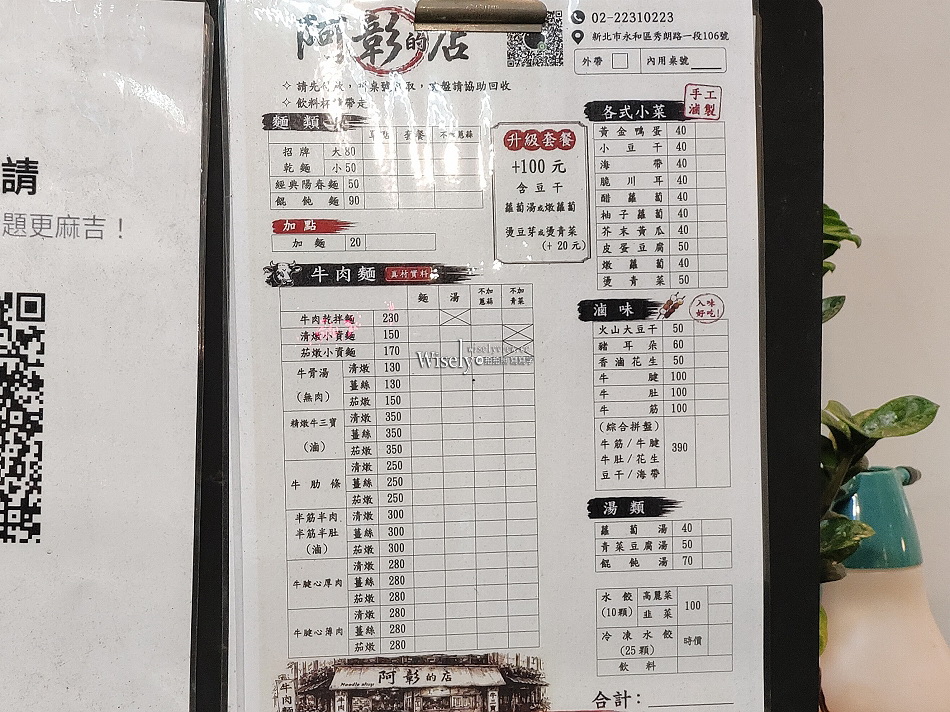 請
題更麻吉！
阿彰的店
02-22310223
新北市永和區秀朗路一段106號
外帶 內用桌號
麵類
單點 套餐
招牌 大 80
乾麵 小 50
經典陽春麵 50
餛飩麵 90
加點
加麵 20
升級套餐
+100 元
含豆干
蘿蔔湯或燉蘿蔔
燙豆芽或燙青菜
(+20元)
牛肉麵 真材實料
麵 湯 不加蔥蒜 不加青菜
牛肉乾拌麵 230
清燉小資麵 150
茄燉小資麵 170
牛骨湯 (無肉)
清燉 130
薑絲 130
茄燉 150
精燉牛三寶 (滷)
清燉 350
薑絲 350
茄燉 350
牛肋條
清燉 250
薑絲 250
茄燉 250
半筋半肉
半筋半肚
(滷)
清燉 300
薑絲 300
茄燉 300
牛腱心厚肉
清燉 280
薑絲 280
茄燉 280
牛腱心薄肉
清燉 280
薑絲 280
茄燉 280
各式小菜 手工滷製
黃金鴨蛋 40
小豆干 40
海帶 40
脆川耳 40
醋蘿蔔 40
柚子蘿蔔 40
芥末黃瓜 40
皮蛋豆腐 50
燉蘿蔔 40
燙青菜 50
滷味 入味好吃!
火山大豆干 50
豬耳朵 60
香滷花生 50
牛腱 100
牛肚 100
牛筋 100
(綜合拼盤)
牛筋/牛腱
牛肚/花生
豆干/海帶
390
湯類
蘿蔔湯 40
青菜豆腐湯 50
餛飩湯 70
水餃 (10顆) 高麗菜 韭菜 100
冷凍水餃 (25顆) 時價
飲料
合計：
阿彰的店
Noodle shop
牛肉麵
Wisely